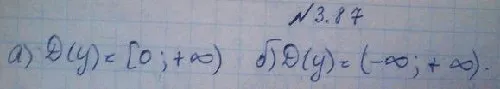 №3.87
а) D(y) = [0; +∞) б) D(y) = (-∞; +∞).